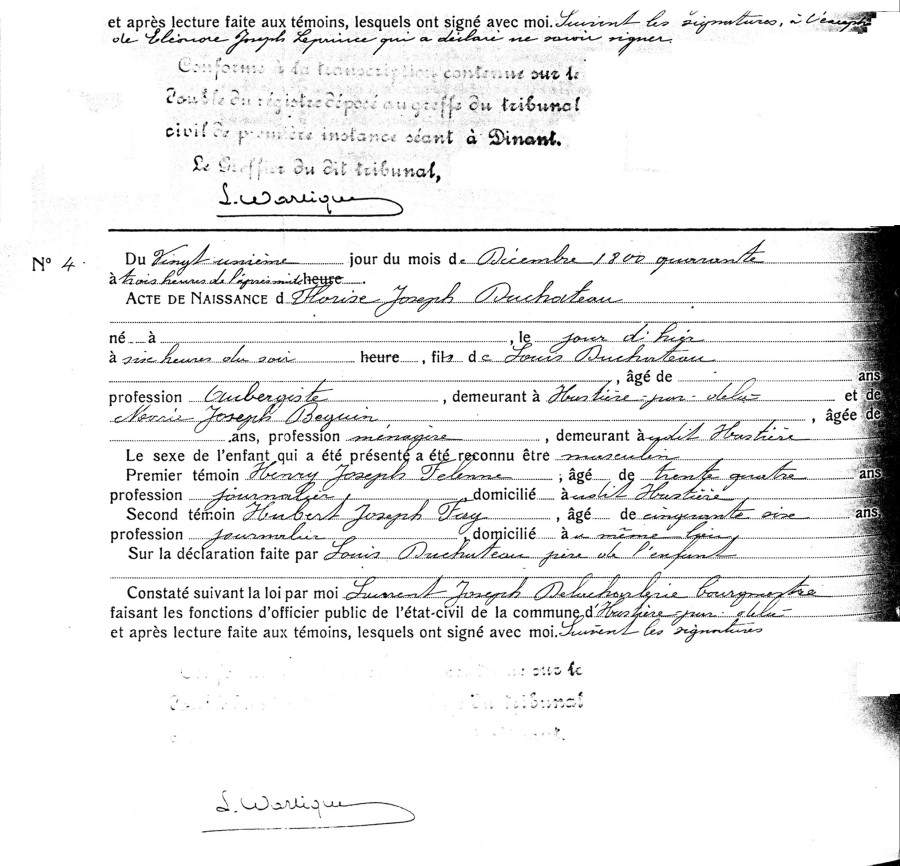 et après lecture faite aux témoins, lesquels ont signé avec moi. Suivent les signatures, à l'except
de Eléonore Joseph Leprince qui a déclaré ne savoir signer.
Conforme à la transcription contenue sur le
double du régistre déposé au greffe du tribunal
civil de première instance séant à Dinant.
Le Greffier du dit tribunal,
L. Warlique
N° 4.
Du Vingt unième jour du mois de Décembre 1800 quarante
à trois heures de l'après midi heure.
ACTE DE NAISSANCE d Florise Joseph Duchateau
né à , le jour d'hier
à six heures du soir heure , fils de Louis Duchateau
, âgé de ans
profession Aubergiste , demeurant à Hastière-par-delà et de
Marie Joseph Beguin , âgée de
ans, profession ménagère , demeurant audit Hastière
Le sexe de l'enfant qui a été présenté a été reconnu être masculin
Premier témoin Henry Joseph Felenne , âgé de trente quatre ans
profession journalier , domicilié audit Hastière
Second témoin Hubert Joseph Fay , âgé de cinquante six ans,
profession journalier , domicilié à même lieu
Sur la déclaration faite par Louis Duchateau père de l'enfant
Constaté suivant la loi par moi Laurent Joseph Delacharlerie bourgmestre
faisant les fonctions d'officier public de l'état-civil de la commune d'Hastière-par-delà
et après lecture faite aux témoins, lesquels ont signé avec moi. Suivent les signatures
sur le
du tribunal
L. Warlique